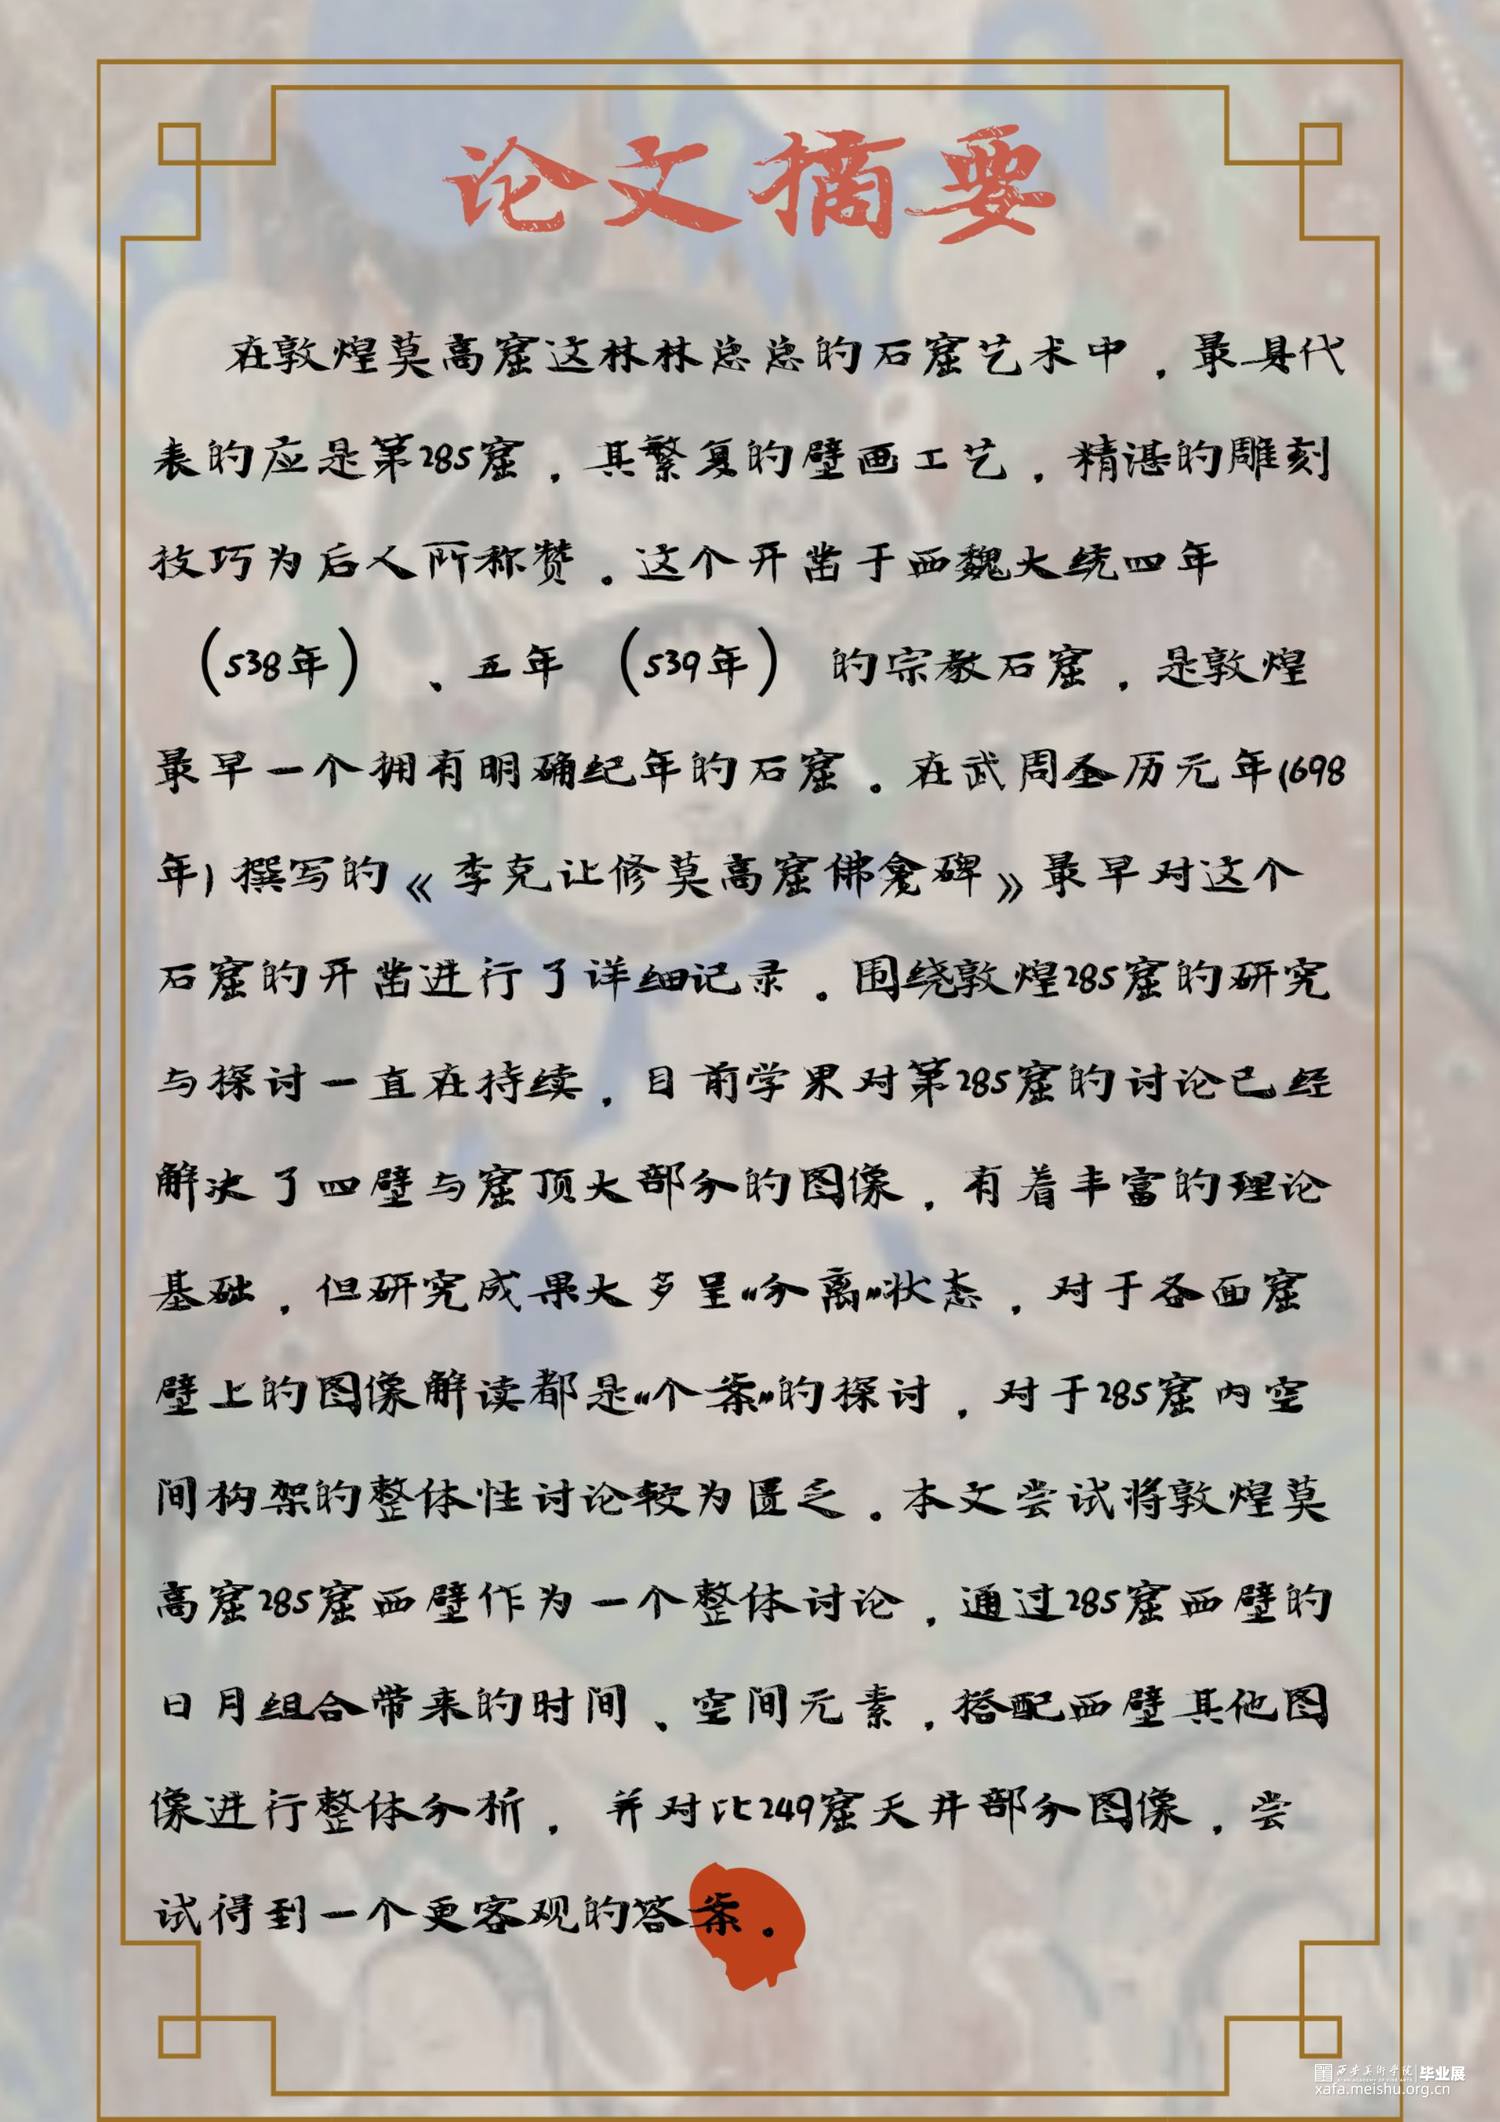 论文摘要
在敦煌莫高窟这林林总总的石窟艺术中，最具代
表的应是第285窟，其繁复的壁画工艺，精湛的雕刻
技巧为后人所称赞。这个开凿于西魏大统四年
（538年）、五年（539年）的宗教石窟，是敦煌
最早一个拥有明确纪年的石窟。在武周圣历元年(698
年)撰写的《李克让修莫高窟佛龛碑》最早对这个
石窟的开凿进行了详细记录。围绕敦煌285窟的研究
与探讨一直在持续，目前学果对第285窟的讨论已经
解决了四壁与窟顶大部分的图像，有着丰富的理论
基础，但研究成果大多呈“分离”状态，对于各面窟
壁上的图像解读都是“个案”的探讨，对于285窟内空
间构架的整体性讨论较为匮乏。本文尝试将敦煌莫
高窟285窟西壁作为一个整体讨论，通过285窟西壁的
日月组合带来的时间、空间元素，搭配西壁其他图
像进行整体分析，并对比249窟天井部分图像，尝
试得到一个更客观的答案。
西安美术学院 毕业展
xafa.meishu.org.cn